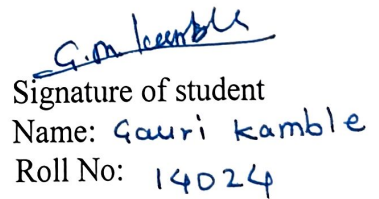 G.M Kamble
Signature of student
Name: Gauri Kamble
Roll No: 14024